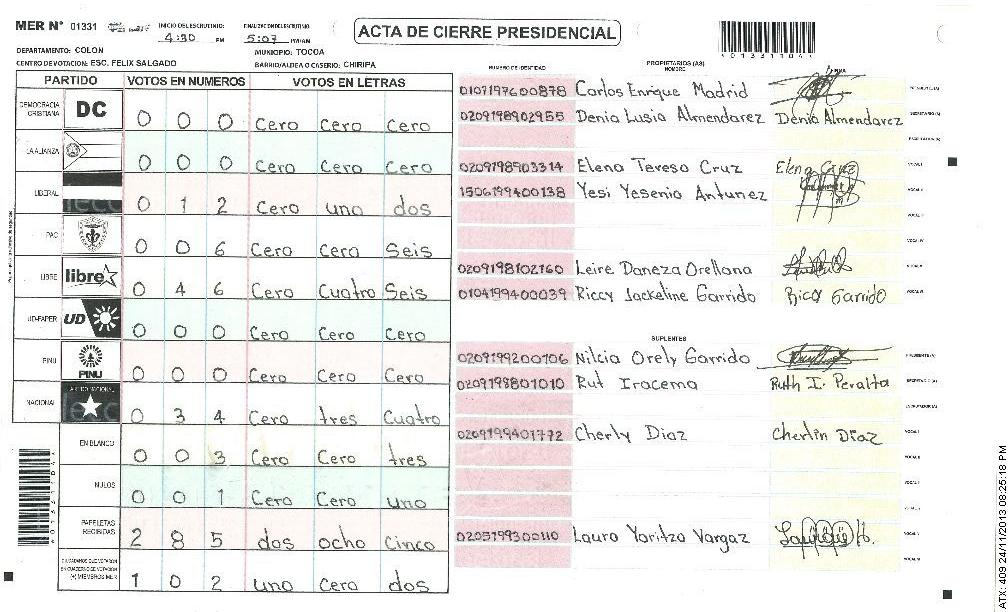 MER N° 01331 INICIO DEL ESCRUTINIO 4:30 PM FINALIZACION DEL ESCRUTINIO 5:07 PM/AM
ACTA DE CIERRE PRESIDENCIAL
DEPARTAMENTO: COLON MUNICIPIO: TOCOA
CENTRO DE VOTACION: ESC. FELIX SALGADO BARRIO/ALDEA O CASERIO: CHIRIPA
PARTIDO VOTOS EN NUMEROS VOTOS EN LETRAS
DEMOCRACIA CRISTIANA DC 0 0 0 Cero Cero Cero
LA ALIANZA 0 0 0 Cero Cero Cero
LIBERAL 0 1 2 Cero uno dos
PAC 0 0 6 Cero Cero Seis
LIBRE libre 0 4 6 Cero Cuatro Seis
UD-FAPER UD 0 0 0 Cero Cero Cero
PINU PINU 0 0 0 Cero Cero Cero
NACIONAL 0 3 4 Cero tres Cuatro
EN BLANCO 0 0 3 Cero Cero tres
NULOS 0 0 1 Cero Cero uno
PAPELETAS RECIBIDAS 2 8 5 dos ocho Cinco
CIUDADANOS QUE VOTARON EN CUADERNO DE VOTACION (+) MIEMBROS MER 1 0 2 uno Cero dos
NUMERO DE IDENTIDAD PROPIETARIOS (AS) NOMBRE FIRMA
0107197600878 Carlos Enrique Madrid PRESIDENTE (A)
0209198902955 Denia Lusia Almendarez Denia Almendarez SECRETARIO (A)
ESCRUTADOR (A)
0209198903314 Elena Tereso Cruz Elena Cruz VOCAL I
1506199400138 Yesi Yesenia Antunez VOCAL II
VOCAL III
VOCAL IV
0209198102160 Leire Daneza Orellana VOCAL V
0104199400039 Riccy Jackeline Garrido Riccy Garrido VOCAL VI
SUPLENTES
0209199200106 Nilcia Orely Garrido PRESIDENTE (A)
0209198801010 Rut Iracema Ruth I. Peralta SECRETARIO (A)
ESCRUTADOR (A)
0209199401772 Cherly Diaz Cherlin Diaz VOCAL I
VOCAL II
0205199300110 Laura Yaritza Vargaz
ATX: 409 24/11/2013 08:25:18 PM